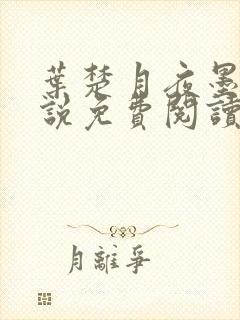 葉楚月夜墨
說免費閱讀
月離爭